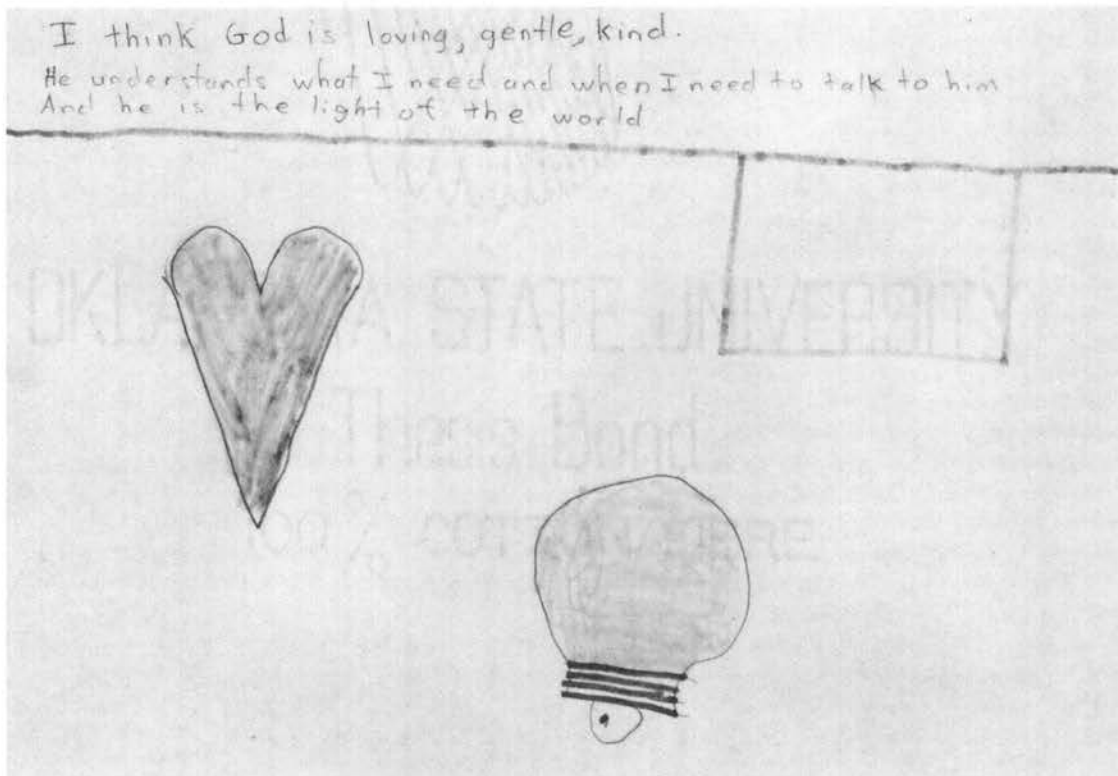 I think God is loving, gentle, kind.
He understands what I need and when I need to talk to him
And he is the light of the world
OKLAHOMA STATE UNIVERSITY
Thesis Bond
100% COTTON FIBRE